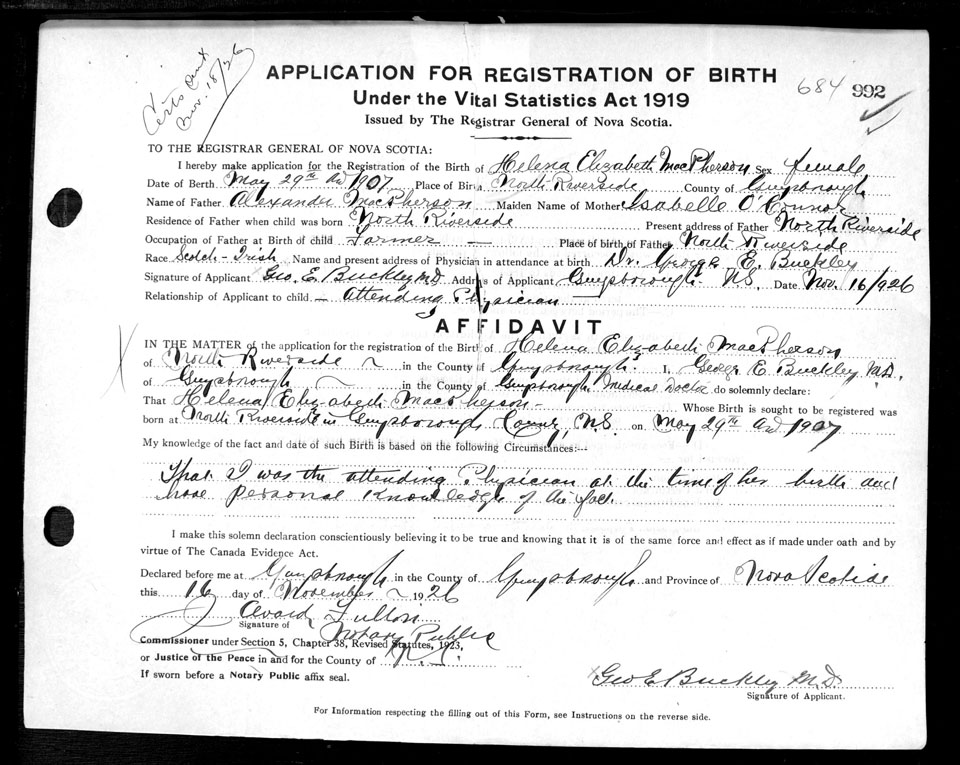 Nov. 18/26
684 992
APPLICATION FOR REGISTRATION OF BIRTH
Under the Vital Statistics Act 1919
Issued by The Registrar General of Nova Scotia.
TO THE REGISTRAR GENERAL OF NOVA SCOTIA:
I hereby make application for the Registration of the Birth of Helena Elizabeth MacPherson Sex female
Date of Birth May 29th AD 1907 Place of Birth North Riverside County of Guysborough
Name of Father Alexander MacPherson Maiden Name of Mother Isabelle O'Connor
Residence of Father when child was born North Riverside Present address of Father North Riverside
Occupation of Father at Birth of child Farmer — Place of birth of Father North Riverside
Race Scotch-Irish Name and present address of Physician in attendance at birth Dr. George E. Buckley
Signature of Applicant Geo. E. Buckley M.D. Address of Applicant Guysborough NS. Date Nov. 16/1926
Relationship of Applicant to child — Attending Physician —
AFFIDAVIT
IN THE MATTER of the application for the registration of the Birth of Helena Elizabeth MacPherson
of North Riverside in the County of Guysborough I, George E. Buckley M.D.
of Guysborough in the County of Guysborough Medical Doctor do solemnly declare:
That Helena Elizabeth MacPherson - Whose Birth is sought to be registered was
born at North Riverside in Guysborough County, NS. on May 29th AD 1907
My knowledge of the fact and date of such Birth is based on the following Circumstances:—
That I was the attending Physician at the time of her birth and
have personal knowledge of the fact.
I make this solemn declaration conscientiously believing it to be true and knowing that it is of the same force and effect as if made under oath and by
virtue of The Canada Evidence Act.
Declared before me at Guysborough in the County of Guysborough and Province of Nova Scotia
this 16 day of November 1926
Avard Fulton
Signature of
Notary Public
Commissioner under Section 5, Chapter 38, Revised Statutes, 1923,
or Justice of the Peace in and for the County of
If sworn before a Notary Public affix seal.
Geo E Buckley M.D.
Signature of Applicant.
For Information respecting the filling out of this Form, see Instructions on the reverse side.